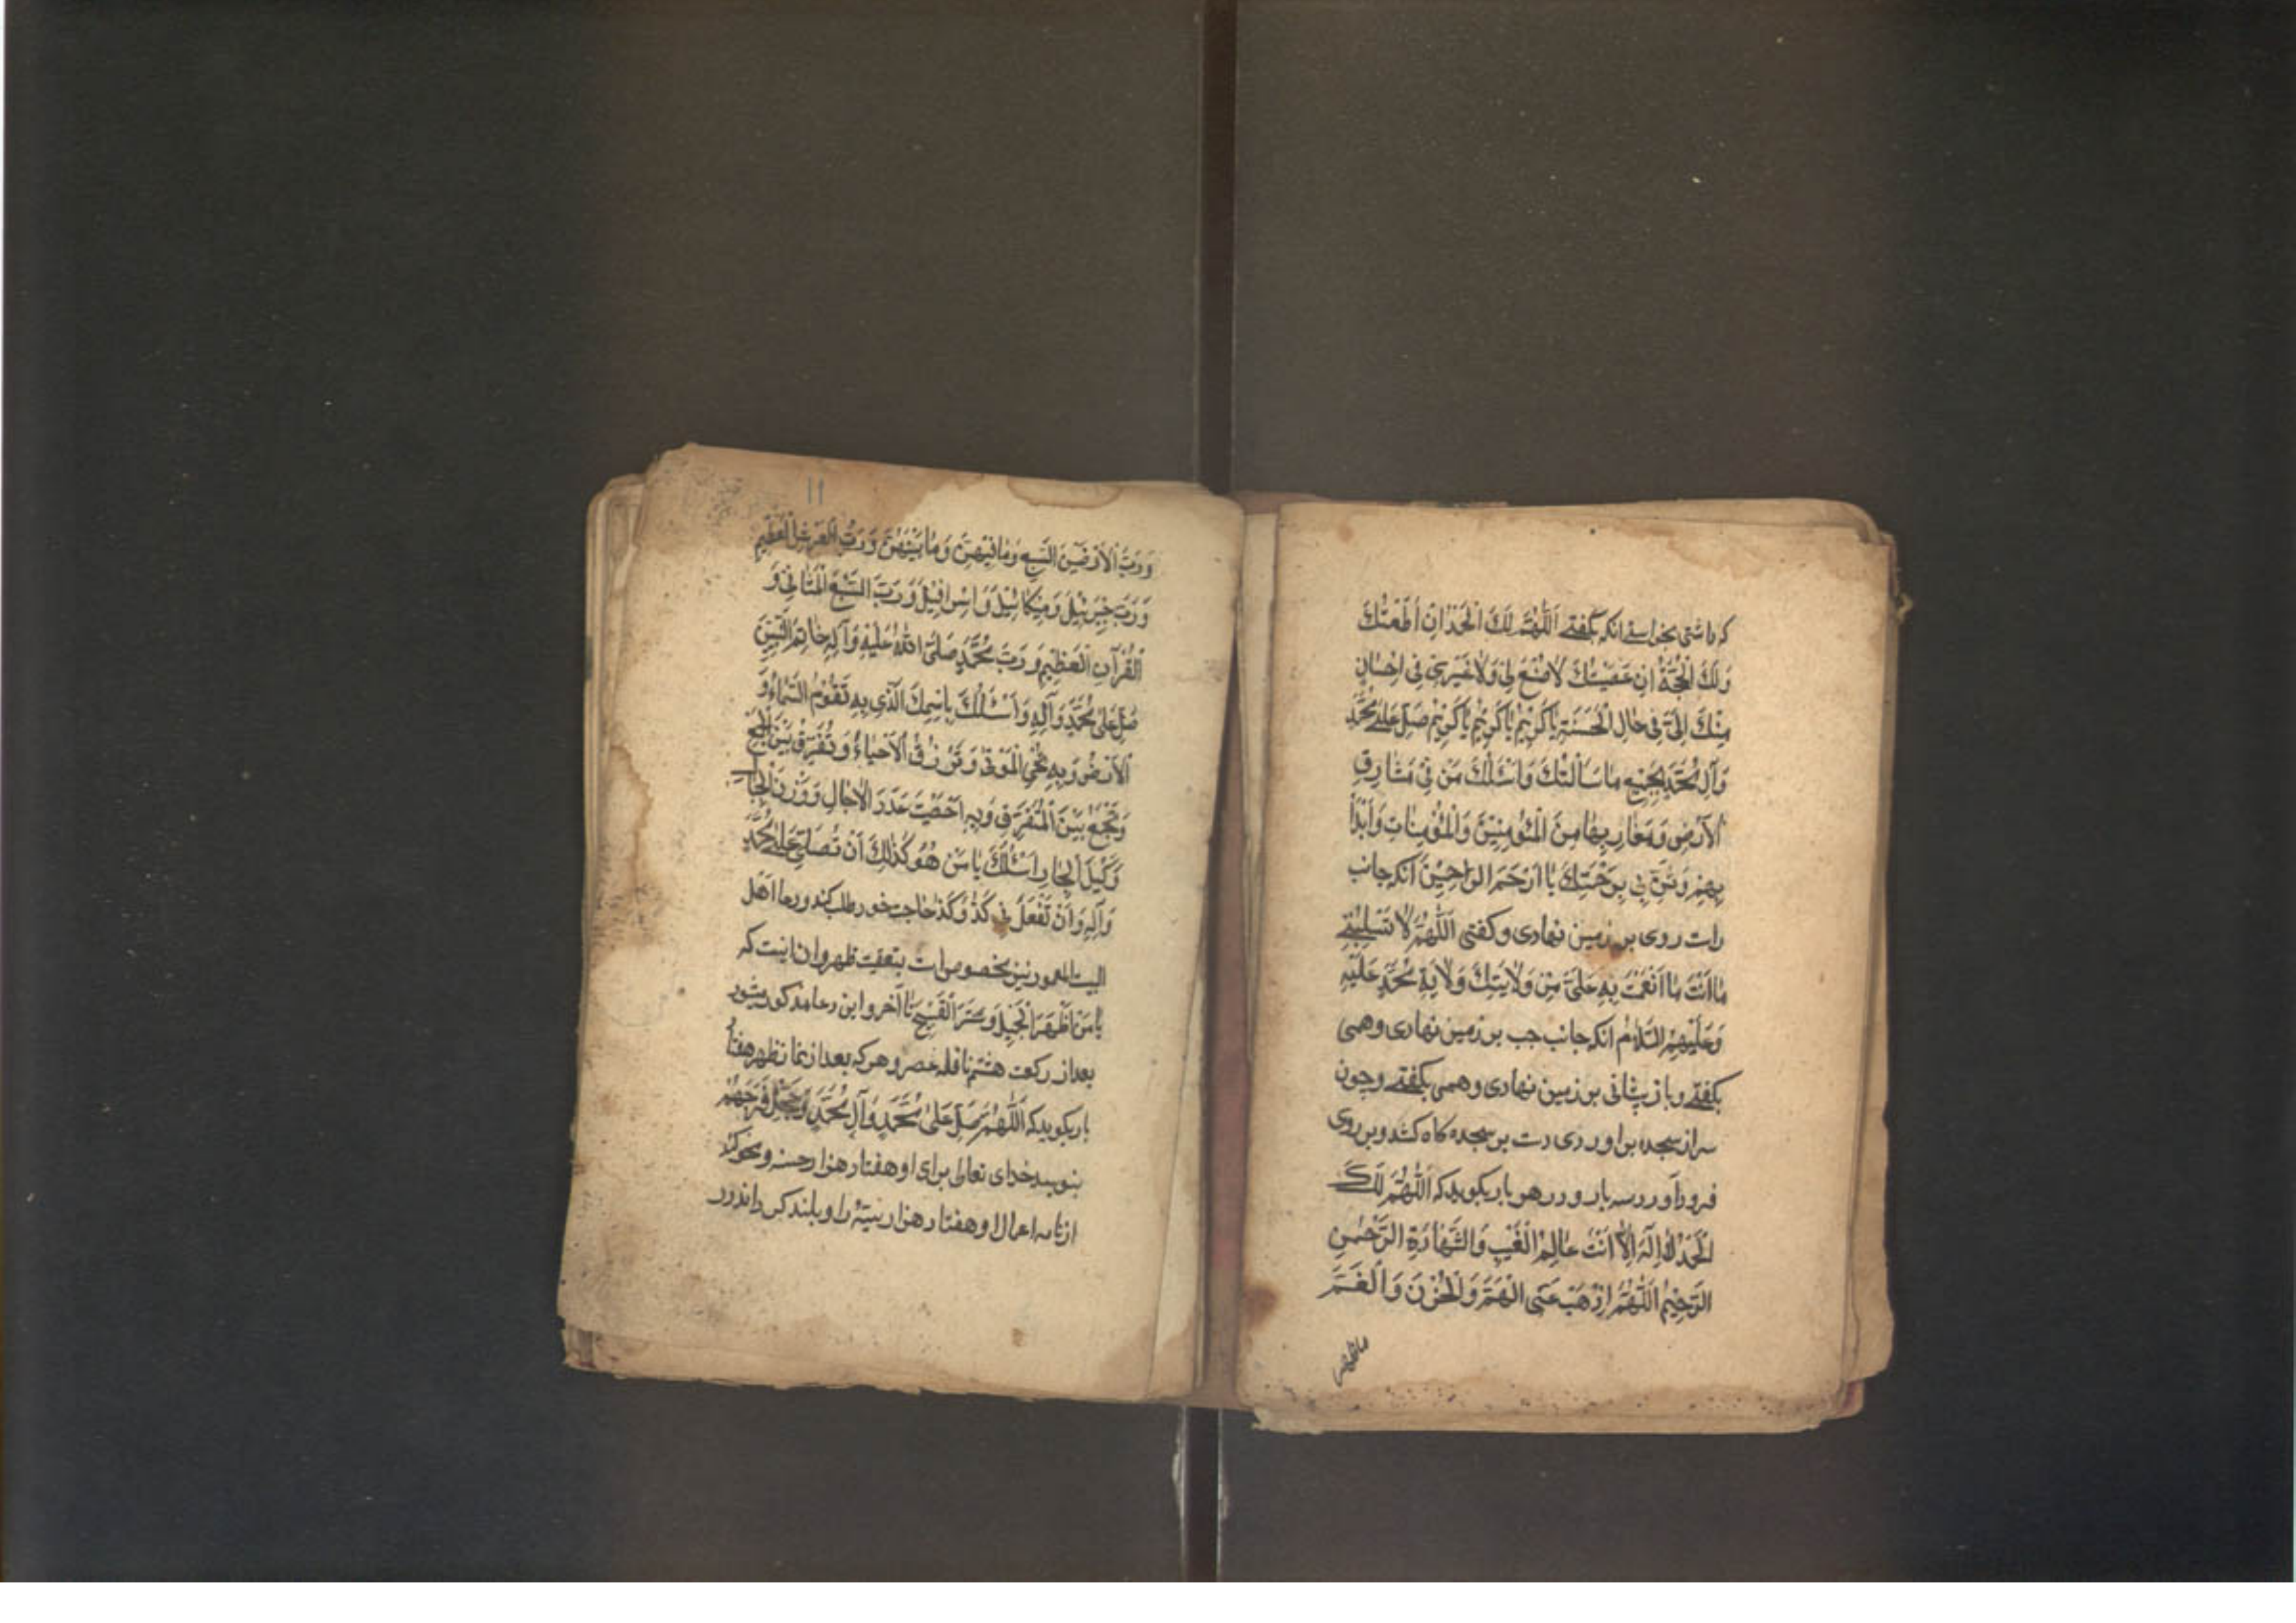 که داشتی بخواستے انکه بگفتے اَللّٰهُمَّ لَكَ الْحَمْدُ اِنْ اَطَعْتُكَ
وَلَكَ الْحُجَّةُ اِنْ عَصَيْتُكَ لَا صُنْعَ لِي وَلَا لِغَيْرِي فِي اِحْسَانٍ
مِنْكَ اِلَيَّ فِي حَالِ الْحَسَنَةِ يَا كَرِيْمُ يَا كَرِيْمُ يَا كَرِيْمُ صَلِّ عَلٰى مُحَمَّدٍ
وَآلِ مُحَمَّدٍ بِجَمِيْعِ مَا سَأَلْتُكَ وَاَسْئَلُكَ مَنْ فِي مَشَارِقِ
الْاَرْضِ وَمَغَارِبِهَا مِنَ الْمُؤْمِنِيْنَ وَالْمُؤْمِنَاتِ وَابْدَأْ
بِهِمْ وَثَنِّ بِي بِرَحْمَتِكَ يَا اَرْحَمَ الرَّاحِمِيْنَ انکه جانب
راست روی بر زمین نهادی و کفتی اَللّٰهُمَّ لَا تَسْلُبْنِي
مَا اَنْتَ مَا اَنْعَمْتَ بِهِ عَلَيَّ مِنْ وَلَايَتِكَ وَلَايَةِ مُحَمَّدٍ عَلَيْهِ
وَعَلَيْهِمُ السَّلَامُ انکه جانب چپ بر زمین نهادی و همی
بکفتے و باز پیشانی بر زمین نهادی و همی بکفتے و چون
سر از سجده بر اوردی دست بر سجده کاه کشد و بر روی
فرود آورد سه بار و در هر بار بکوید که اَللّٰهُمَّ لَكَ
الْحَمْدُ لَا اِلٰهَ اِلَّا اَنْتَ عَالِمُ الْغَيْبِ وَالشَّهَادَةِ الرَّحْمٰنُ
الرَّحِيْمُ اَللّٰهُمَّ اذْهَبْ عَنِّي الْهَمَّ وَالْحُزْنَ وَالْغَمَّ
۱۲
وَ رَبَّ الْاَرَضِيْنَ السَّبْعِ وَمَا فِيْهِنَّ وَمَا بَيْنَهُنَّ وَ رَبَّ الْعَرْشِ الْعَظِيْمِ
وَ رَبَّ جَبْرَئِيْلَ وَمِيْكَائِيْلَ وَاِسْرَافِيْلَ وَ رَبَّ السَّبْعِ الْمَثَانِي وَ
الْقُرْآنِ الْعَظِيْمِ وَ رَبَّ مُحَمَّدٍ صَلَّى اللّٰهُ عَلَيْهِ وَآلِهِ خَاتَمِ النَّبِيِّيْنَ
صَلِّ عَلٰى مُحَمَّدٍ وَآلِهِ وَاَسْئَلُكَ بِاسْمِكَ الَّذِي بِهِ تَقُوْمُ السَّمَاءُ وَ
الْاَرْضُ وَبِهِ تُحْيِي الْمَوْتٰى وَتَرْزُقُ الْاَحْيَاءَ وَ تُفَرِّقُ بَيْنَ الْجَمْعِ
وَتَجْمَعُ بَيْنَ الْمُتَفَرِّقِ وَبِهِ اَحْصَيْتَ عَدَدَ الْاٰجَالِ وَ وَزْنَ الْجِبَالِ
وَكَيْلَ الْبِحَارِ اَسْئَلُكَ يَا مَنْ هُوَ كَذٰلِكَ اَنْ تُصَلِّيَ عَلٰى مُحَمَّدٍ
وَآلِهِ وَاَنْ تَفْعَلَ بِي كَذَا وَ كَذَا حاجت خود طلب کند و دعا اهل
البیت المعمور نیز مخصوص است بتعقیب ظهر و ان اینست که
يَا مَنْ اَظْهَرَ الْجَمِيْلَ وَسَتَرَ الْقَبِيْحَ تا آخر و این دعا مذکور میشود
بعد از رکعت هشتم نافله عصر و هر که بعد از نماز ظهر هفتاد
بار بکوید که اَللّٰهُمَّ صَلِّ عَلٰى مُحَمَّدٍ وَآلِ مُحَمَّدٍ وَعَجِّلْ فَرَجَهُمْ
بنویسد خدای تعالی برای او هفتاد هزار حسنه و محو کند
از نامه اعمال او هفتاد هزار سیّئه را و بلند کرداند در